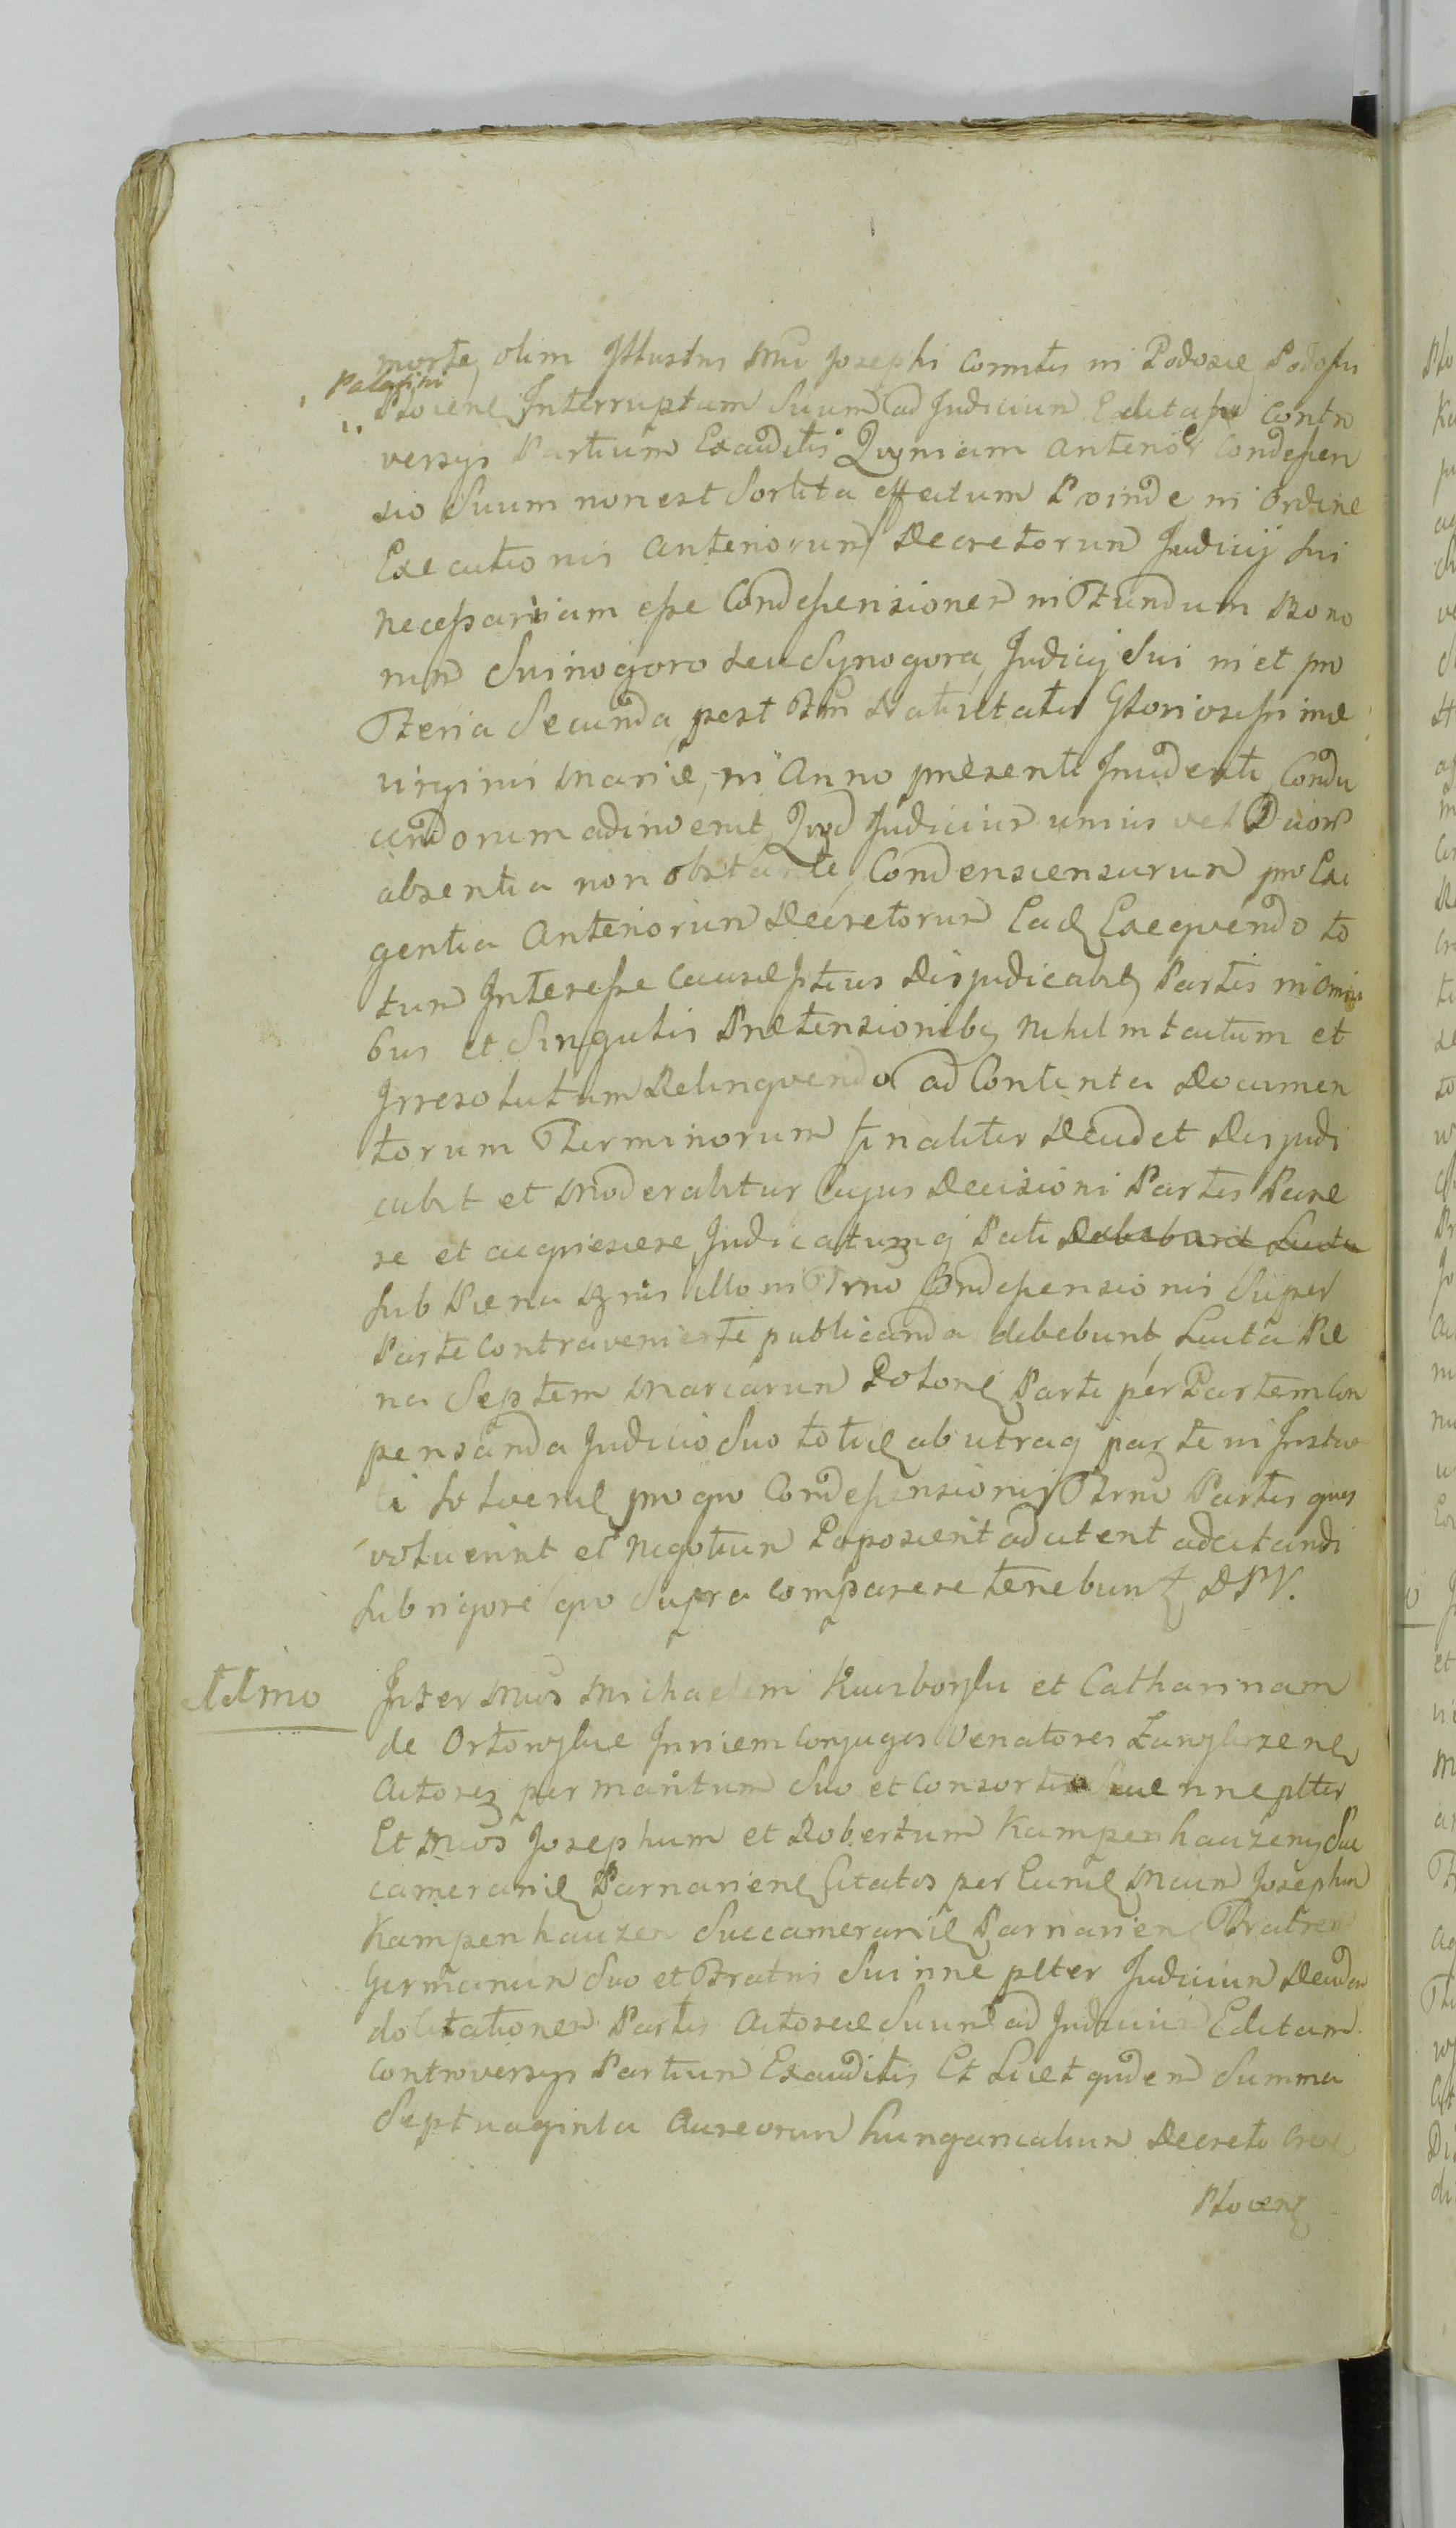 morte, olim Illustris Mci Josephi Comitis in Podosie Podoski
Palatini
Plocień Interruptam Suum ad Judicium Editase Contro
versys Partium Exauditis Qvoniam anterior Condescen
sio Suum non est Sortita effectum Proinde in Ordine
Executionis anteriorum Decretorum Judicij sui
necessariam esse Condescensionem in Fundum Bono
rum Swinogoro seu Synogora, Judicij Sui in et pro
Feria Secunda post Ftum Nativitatis Gloriosissime
virginis Mariæ, in Anno præsenti Incidenti, Condu
cendorum adinvenit, Qvod Judicium unius vel Duor
absentia non obstante, Condenscensurum pro Exi
gentia Anteriorum Decretorum Eaq Exeqvendo to
tum Interesse causæ Ptius Disjudicabit Partis in omni
bus et Singulis Prætensionibq Nihil intactum et
Irresolutum Relinqvendo ad Contenta Documen
torum Terminorum finaliter Decidet Disjudi
cabit et Moderabitur Cujus Decisioni Partes Pare
re et acqviescere Judicatumq Pati Debebunt Luita
sub Pœna Bnis illo in Trno Condescensionis Super
Parte Contraveniente publicanda debebunt, Luita Pœ
na Septem Marcarum Polonq Parti per Partem Com
pensanda Judicio Suo totieq ab utraq parte in Instan
ti solvenq pro qvo Condescensionis Trno Partes qvos
voluerint et Negotium Poposcerit adcitent adcitandi
sub rigore qvo Supra comparere tenebunt DPV.
Idmo Inter Mcos Michaelem et Catharinam
de Conjuges Venatores
Actores per maritum Suo et Consortis Suæ nne plter
Et Mcos Josephum et Robertum Kampenhauzeny Suc
cameranię Parnavienę Citatos per Eunq Mcum Josephum
Kampenhauzen Succameranię Parnavien Fratrem
Germanum Suo et Fratris Sui nne plter Judicium Deciden
do Citationem Partis Actoreæ Suum ad Judicium Editam
Controversys Partium Exauditis Et Licet qvidem Summa
Septuaginta Aureorum hungaricalium Decreto
Plocenę